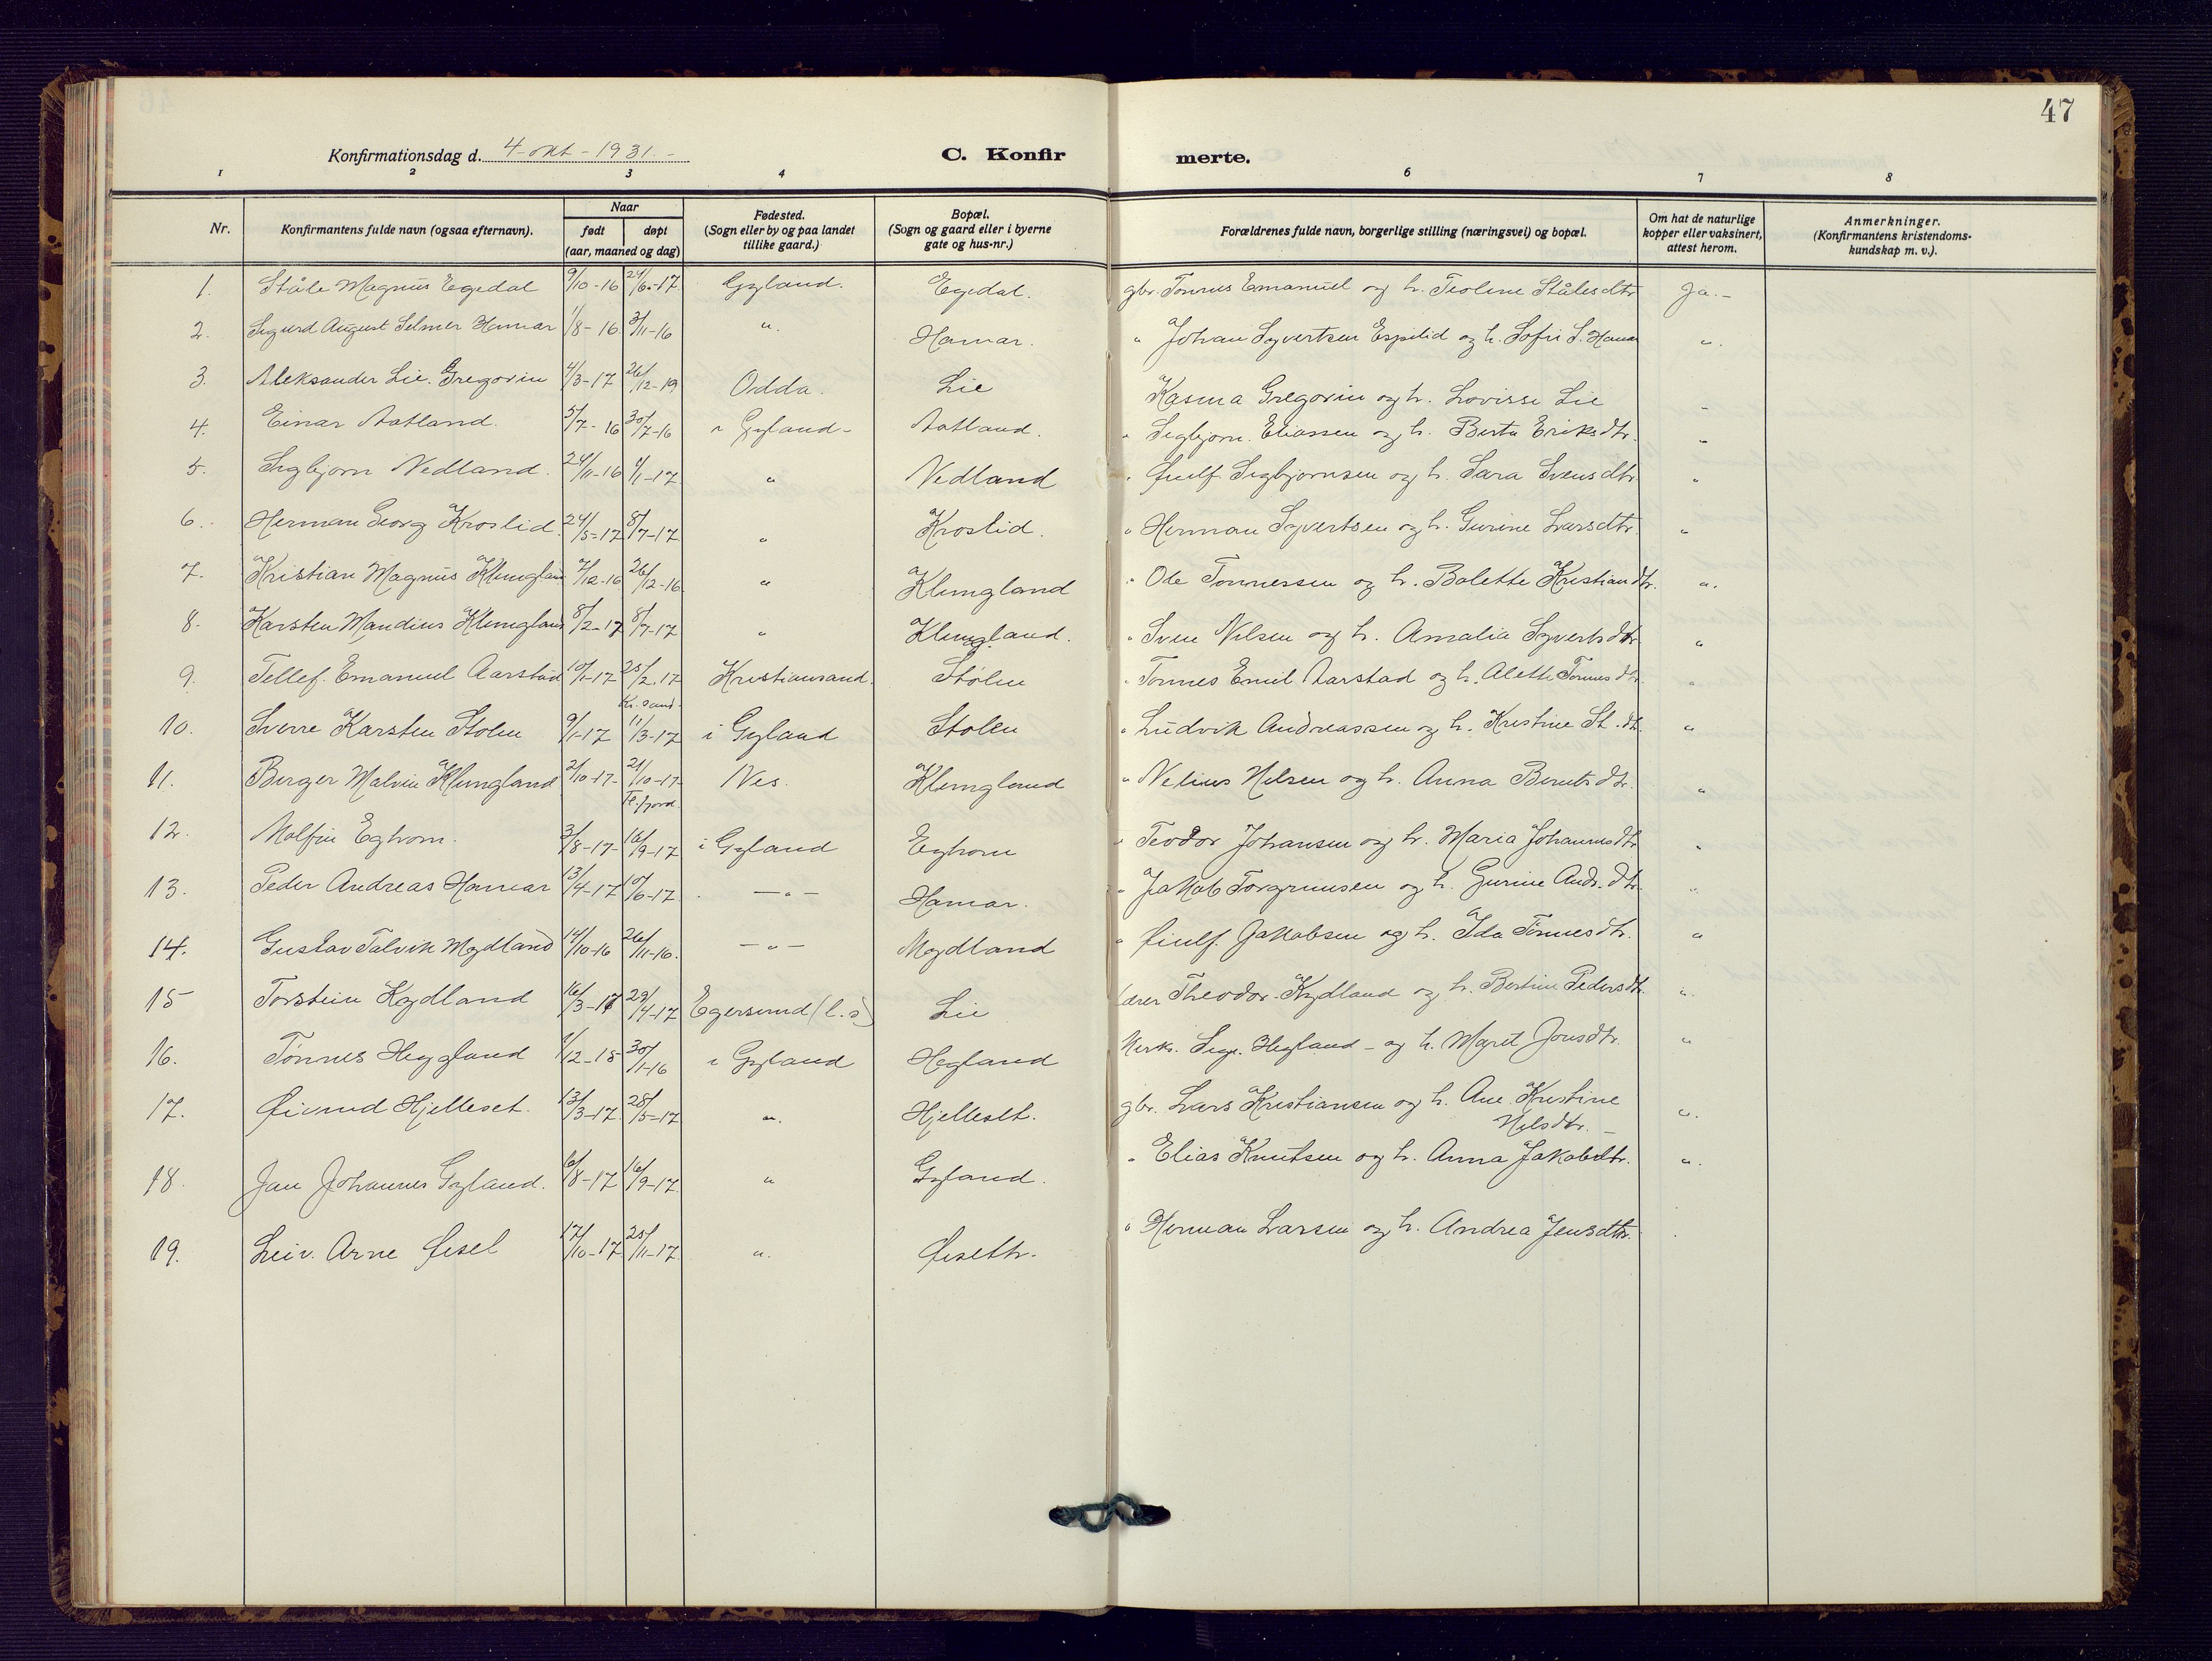 47
Konfirmationsdag d. 4-okt-1931.-
C. Konfirmerte.
1 2 3 4 6 7 8
Nr. Konfirmantens fulde navn (ogsaa efternavn). Naar født døpt (aar, maaned og dag) Fødested. (Sogn eller by og paa landet tillike gaard.) Bopæl. (Sogn og gaard eller i byerne gate og hus-nr.) Forældrenes fulde navn, borgerlige stilling (næringsvei) og bopæl. Om hat de naturlige kopper eller vaksinert, attest herom. Anmerkninger. (Konfirmantens kristendomskundskap m. v.).
1. Ståle Magnus Egedal 9/10-16 24/6-17 Gyland. Egedal. gbr. Tønnes Emanuel og h. Teoline Stålesdtr Ja.-
2. Sigurd August Selmer Hamar 1/8-16 3/11-16 " Hamar. " Johan Syvertsen Espelid og h. Sofie S. Hamar "
3. Aleksander Lie. Gregorin 4/3-17 26/12-19 Odda. Lie Kasma Gregorin og h. Lovisse Lie -
4. Einar Aatland. 5/7-16 30/7-16 i Gyland- Aatland. " Sigbjørn Eliassen og h. Berta Eriksdtr. "
5. Sigbjørn Nedland. 24/11-16 1/1-17 " Nedland " Øiulf Sigbjørnsen og h. Sara Svensdtr. "
6. Herman Georg Kroslid. 24/5-17 8/7-17 " Kroslid. " Herman Syvertsen og h. Gurine Larsdtr. "
7. Kristian Magnus Klungland 7/12-16 26/12-16 " Klungland " Ole Tønnessen og h. Bolette Kristiandtr. "
8. Karsten Mandius Klungland 8/2-17 8/7-17 " Klungland. " Sven Nilsen og h. Amalia Syvertsdtr. "
9. Tellef. Emanuel Aarstad 10/1-17 25/2.17 Kr.sand. Kristiansand. Stølen " Tønnes Emil Aarstad og h. Alette Tønnesdtr. "
10. Sverre Karsten Stølen 9/1-17 11/3-17 i Gyland Stølen " Ludvik Andreassen og h. Kristine St.dtr. "
11. Berger Malvin Klungland 2/10-17- 21/10-17- Fl.fjord. Nes. Klungland " Nelius Nilsen og h. Anna Berntsdtr. "
12. Eghom. 3/8-17- 16/9-17 i Gyland Eghom " Teodor Johansen og h. Maria Johannesdtr. "
13. Peder Andreas Hamar 13/4-17 10/6-17 -"- Hamar. " Jakob Torgrimsen og h. Gurine Andr.dtr. "
14. Gustav Talvik Mydland 14/10-16 26/11-16. -"- Mydland " Øiulf. Jakobsen og h. Ida Tønnesdtr. "
15 Torstein Kydland 16/3-17 29/4-17 Egersund (l.s) Lie lærer Theodor Kydland og h. Bertine Pedersdtr. "
16. Tønnes Heggland 1/12-15 30/1-16 i Gyland Hegland Hegland - og h. Marit Jonsdtr. "
17. Øivind Hjelleset. 13/3-17. 28/5-17 " Hjelleset. gbr. Lars Kristiansen og h. Ane Kristine Nilsdtr. - "
18. Jan Johannes Gyland. 6/8-17 16/9-17. " Gyland. " Elias Knutsen og h. Anna Jakobdtr. "
19. Leiv. Arne Øisel 17/10-17 25/11-17. " " Herman Larsen og h. Andrea Jensdtr.